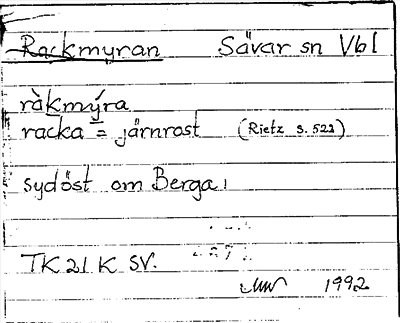 Rackmyran Sävar sn Vbl
ràkmýra
racka = järnrost (Rietz s. 523)
sydöst om Berga.
TK 21 K SV.
1992